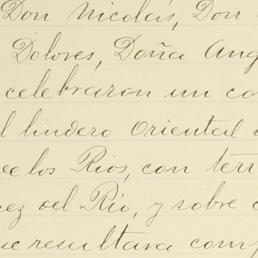 Don Nicolás, Don
Dolores, Doña Ang
celebraron un co
l lindero Oriental
de los Rios, con terr
ez del Rio, y sobre
ue resultara comp